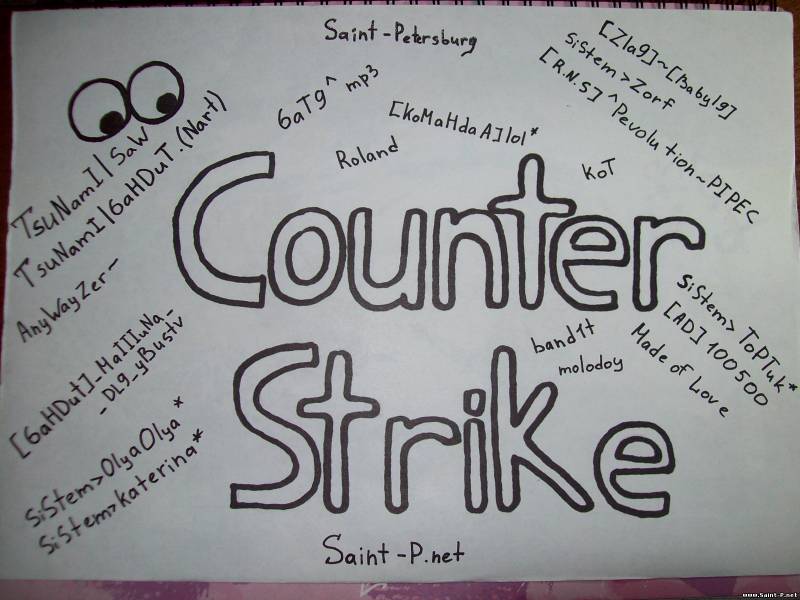 Saint-Petersburg
[Zlag]~[Baby19]
SiStem>Zorf
[R.N.S]^Pevolution~PIPEC
6aTg^mp3
[KoMaHdaA]lol*
Roland
KoT
TsuNamI|SaW
TsuNamI|6aHDuT.(Nart)
AnyWayZer~
Counter
Strike
[6aHDut]_MaIIIuNa_
_DLg_yBustv
SiStem>OlyaOlya*
SiStem>Katerina*
band1t
molodoy
SiStem>ToPTuk*
[AD]100500
Made of Love
Saint-P.net
www.Saint-P.net